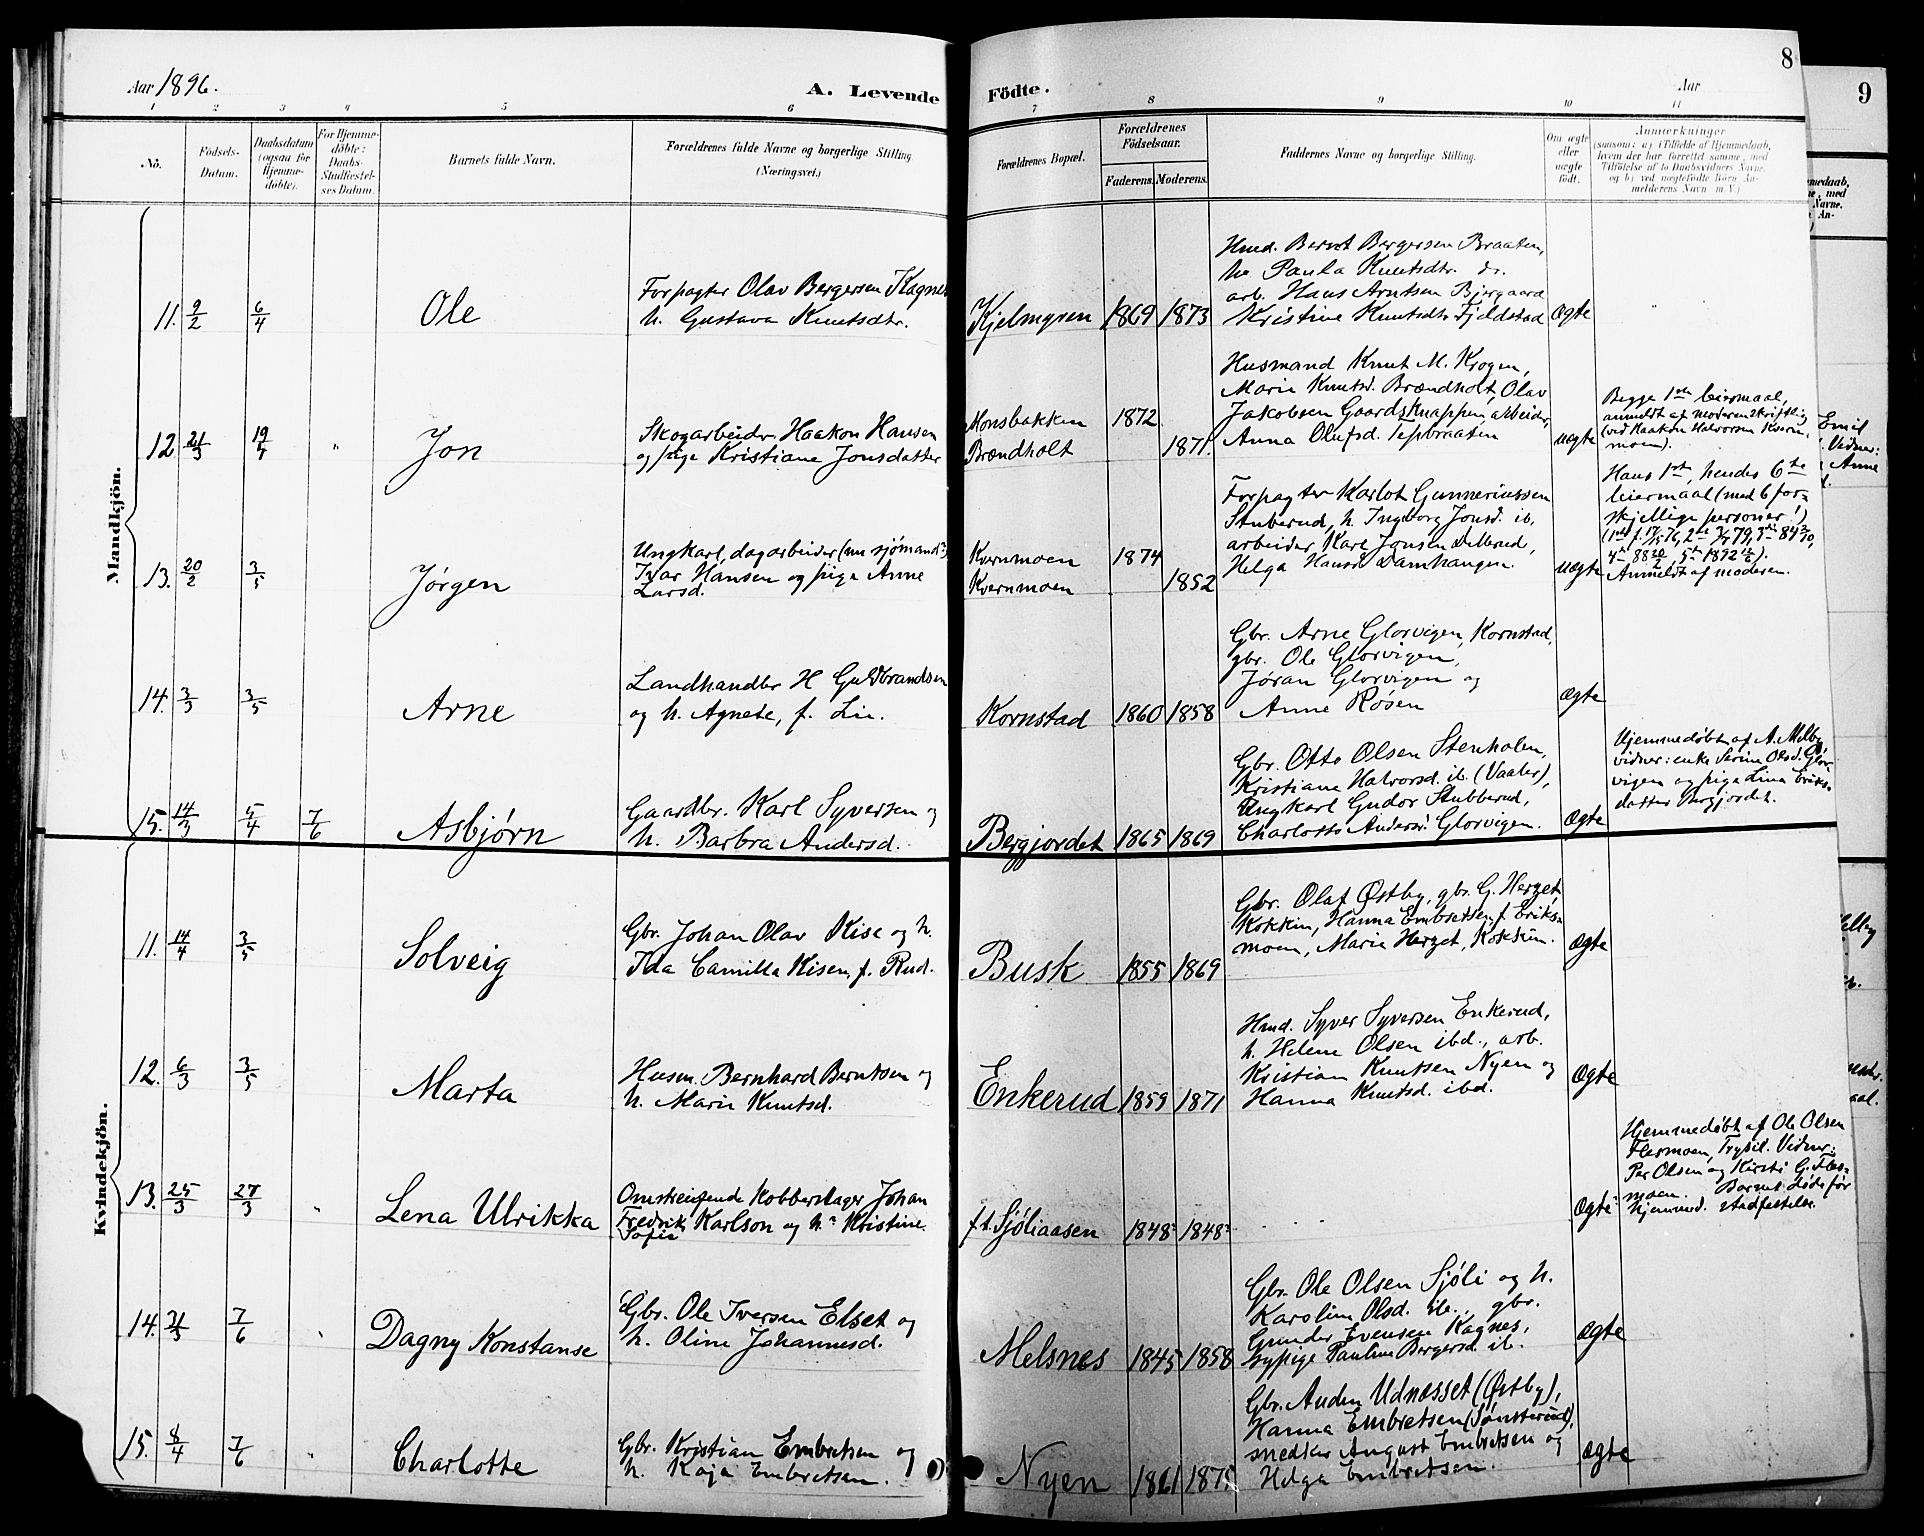 Aar 1896.
A. Levende
Födte.
Aar
8
9
1 2 3 4 5 6 7 8 9 10 11
No.
Födsels-
Datum.
Daabsdatum
(ogsaa for
Hjemme-
döbte).
For Hjemme-
döbte:
Daabs-
Stadfæstel-
ses Datum.
Barnets fulde Navn.
Forældrenes fulde Navne og borgerlige Stilling
(Næringsvei.)
Forældrenes Bopæl.
Forældrenes
Födselsaar.
Faderens. Moderens.
Faddernes Navne og borgerlige Stilling.
Om ægte
eller
uægte
födt.
Anmærkninger
(saasom: a) i Tilfælde af Hjemmedaab,
hvem der har forrettet samme, med
Tilföielse af to Daabsvidners Navne,
og b) ved uægtefödte Börn An-
melderens Navn m. V.)
Mandkjön.
11. 9/2 6/4 Ole
Forpagter Olav Bergersen Kagnes
h. Gustava Knutsdtr.
Kjelmyren 1869 1873
Hmd. Bernt Bergersen Braaten,
hu Paula Knutsdtr. ds.
arb. Hans Arntsen Bjergaard
Kristine Knutsdtr Fjeldstad
Ægte
12. 21/3 19/4 " Jon
Skogarbeider Haakon Hansen
og pige Kristiane Jonsdatter
Monsbakken 1872
Brændholt 1871.
Husmand Knut M. Krogen,
Marie Knutsd. Brændholt, Olav
Jakobsen Gaardsknappen arbeider,
Anna Olufsd. Tepbraaten
uægte
Begge 1ste leiermaal,
anmeldt af moderen skriftlig
(ved Haakon Halvorsen Kvern-
moen).
13. 20/2 3/5 Jørgen
Ungkarl, dagarbeider (nu sjømand?)
Ivar Hansen og pige Anne
Larsd.
Kvernmoen 1874
Kvernmoen 1852
Forpagter Karlot Gunneriussen
Stuberud, h. Ingborg Jonsd. ib.
arbeider Karl Jonsen Dellerud,
Helga Hansd Damhaugen.
uægte
Hans 1ste, hendes 6te
leiermaal (med 6 for-
skjellige personer!)
Anmeldt af moderen.
14. 3/3 3/5 Arne
Landhandler H Guldbrandsen
og h. Agnete, f. Lie.
Kornstad 1860 1858
Gbr. Arne Glorvigen, Kornstad,
gbr. Ole Glorvigen,
Jøran Glorvigen og
Anne Røsen
Ægte
15. 14/3 5/4 7/6 Asbjørn
Gaardbr. Karl Syversen og
h. Barbra Andersd.
Bergjordet 1865 1869
Gbr. Otto Olsen Stenholen,
Kristiane Halvorsd. ib. (Vaaler),
Ungkarl Gudor Stubberud,
Charlotte Andersd. Glorvigen.
Ægte
Hjemmedøbt af A. Melby,
vidner: enke Serine Olsd. Glor-
vigen og pige Lina Eriks-
datter Bergjordet.
Kvindekjön.
11. 14/4 3/5 Solveig
Gbr. Johan Olav Kise og h.
Ida Camilla Kisen, f. Rud.
Busk 1855 1869
Gbr. Olaf Østby, gbr. G. Herzet,
Kokkin, Hanna Embretsen, f. Eriks-
moen, Marie Herzet, Kokkin.
Ægte
12. 6/3 3/5 Marta
Husm. Bernhard Berntsen og
h. Marie Knutsd.
Enkerud 1859 1871
Hmd. Syver Syversen Enkerud,
h. Helene Olsen ibd., arb.
Kristian Knutsen Nyen og
Hanna Knutsd. ibd.
Ægte
13. 25/3 27/3 " Lena Ulrikka
Omstreifende Kobberslager Johan
Fredrik Karlson og h. Kristine
Sofie
f.t. Sjøliaasen 1848? 1848?
Ægte?
Hjemmedøbt af Ole Olsen
Flermoen, Trysil. Vidner:
Per Olsen og Kirsti G. Fler-
moen. Barnet døde før
hjemmed. stadfestelse.
14. 7/6 Dagny Konstanse
Gbr. Ole Iversen Elset og
h. Oline Johannesd.
Melsnes 1845 1858
Gbr. Ole Olsen Sjøli og h.
Karoline Olsd. ib., gbr.
Gunder Evensen Kagnes,
sypige Pauline Bergersd. ib.
Ægte
15. 8/4 7/6 " Charlotte
Gbr. Kristian Embretsen og
h. Kaja Embretsen.
Nyen 1861 1875
Gbr. Anden Udnæsset (Østby),
Hanna Embretsen (Sønsterud),
snedker August Embretsen og
Helga Embretsen.
Ægte